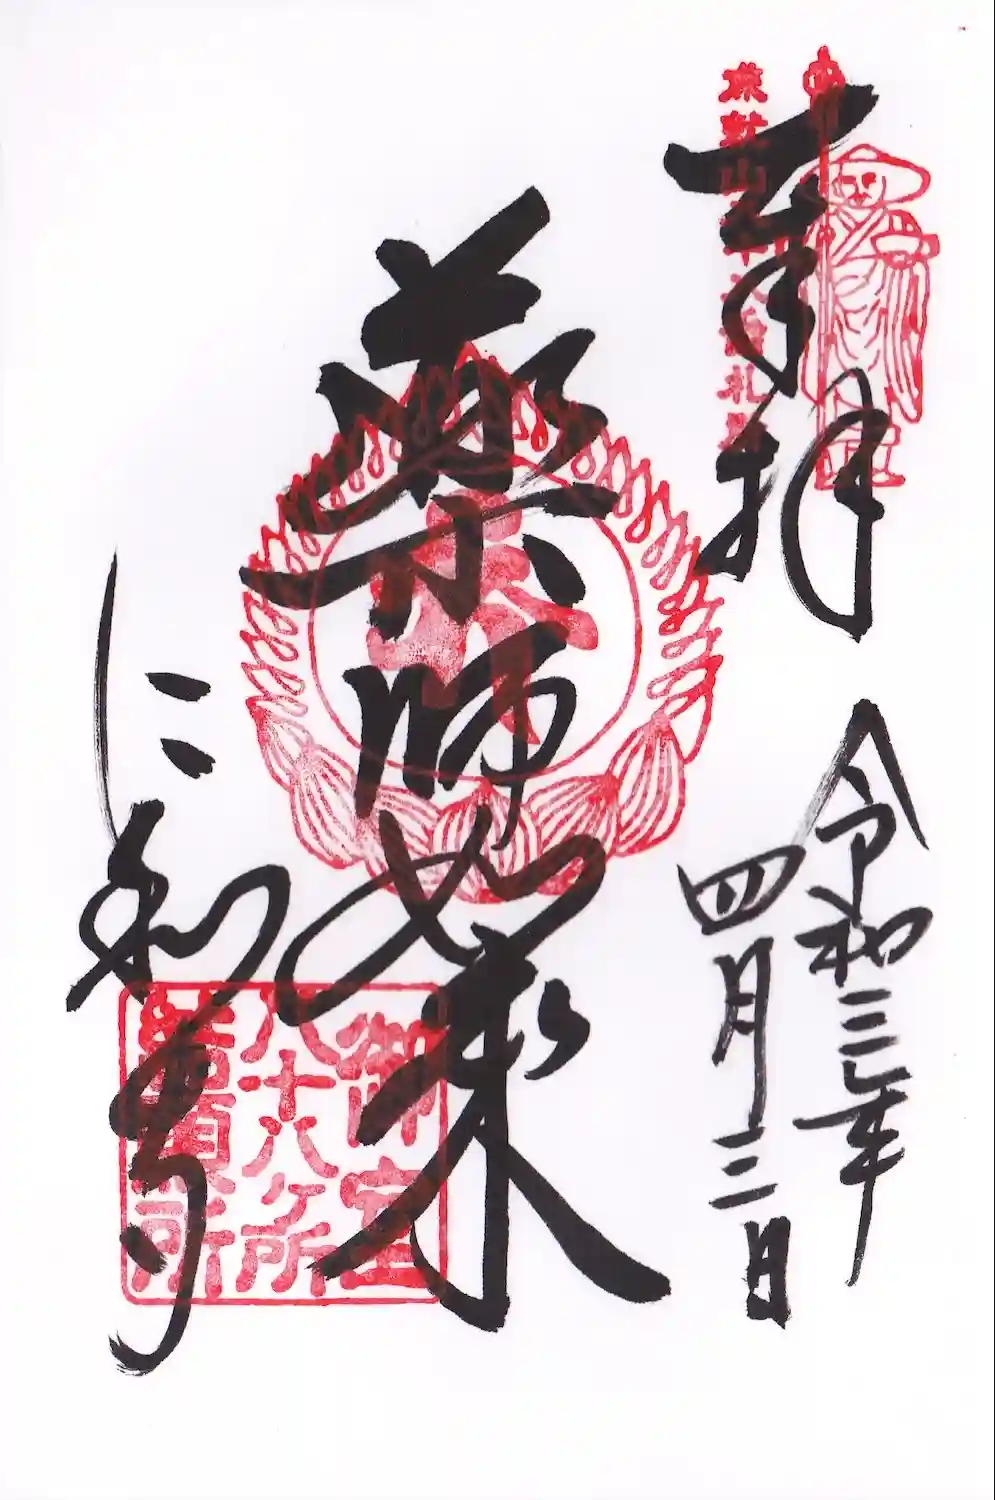 奉拝
令和三年
四月三日
薬師如来
仁和寺
御室
八十八ヶ所
結願所